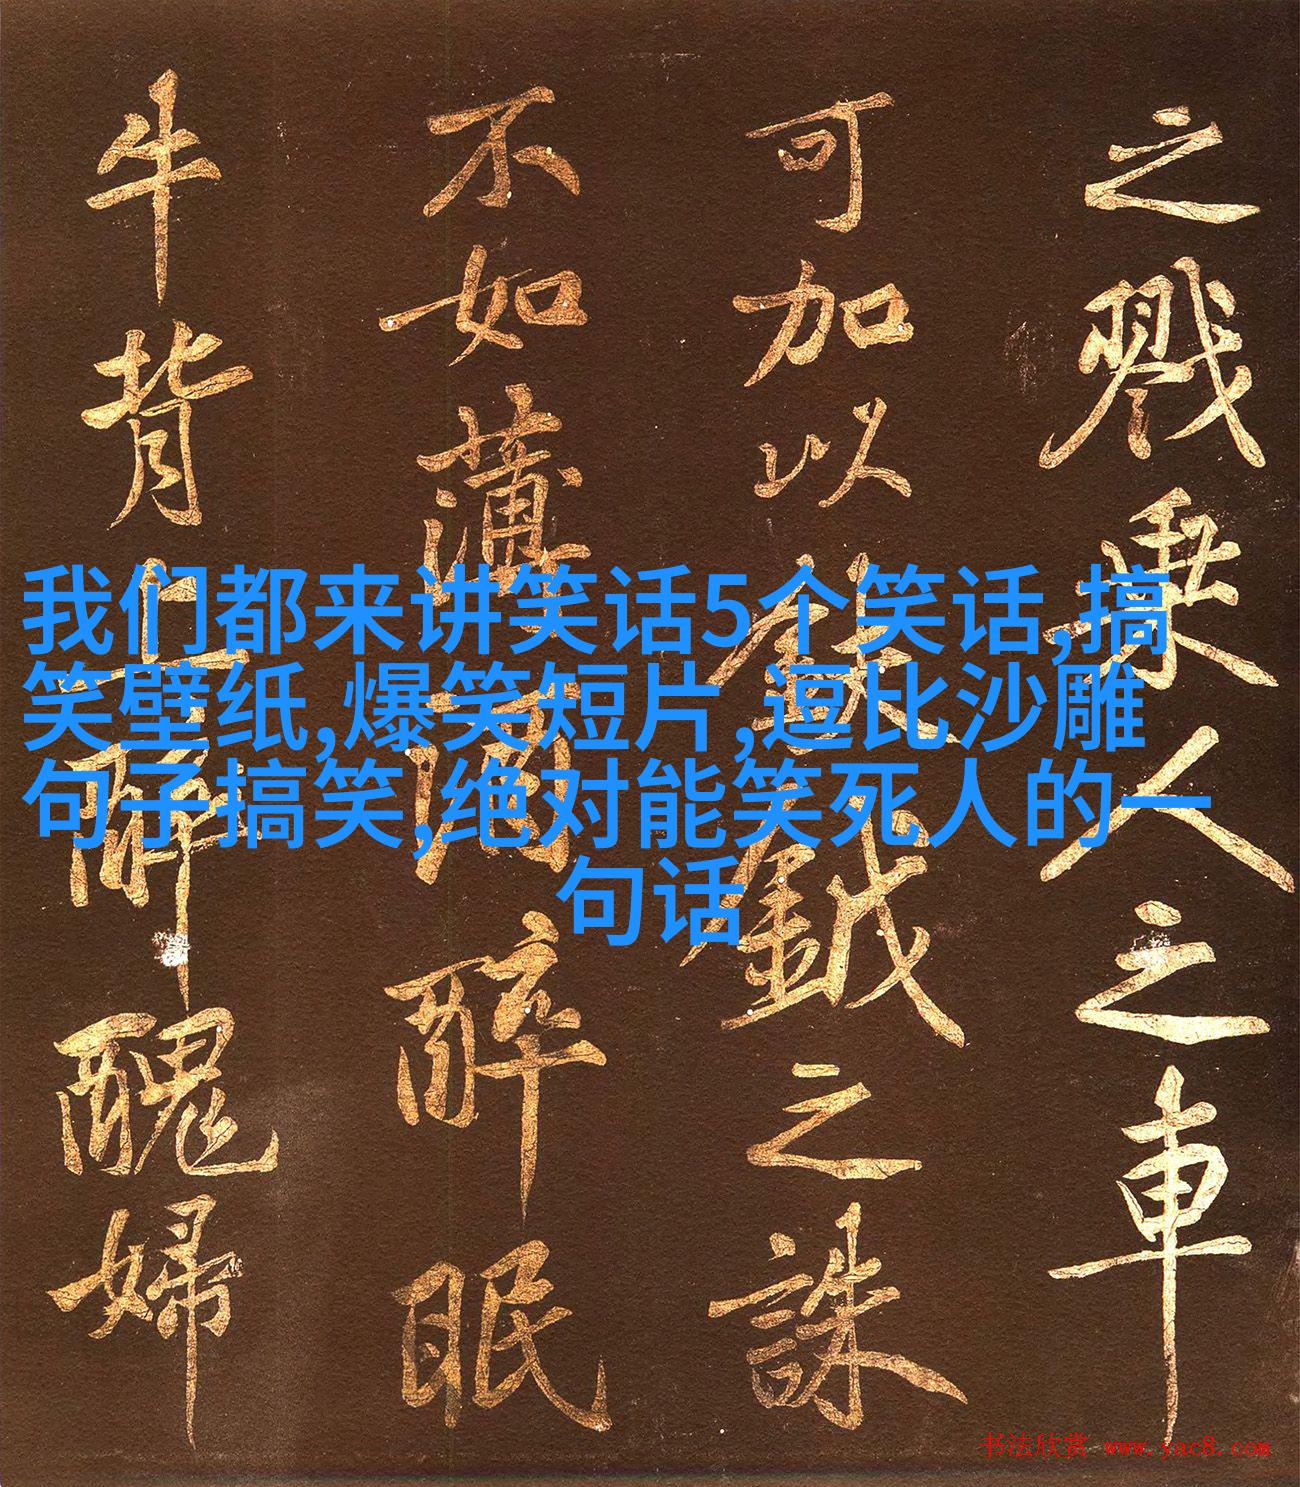 之戮乘人之車
可加以鈇鉞之誅
不如薄酒醉眠
牛背上醜婦
我们都来讲笑话5个笑话,搞
笑壁纸,爆笑短片,逗比沙雕
句子搞笑,绝对能笑死人的一
句话
书法欣赏 www.yac8.com